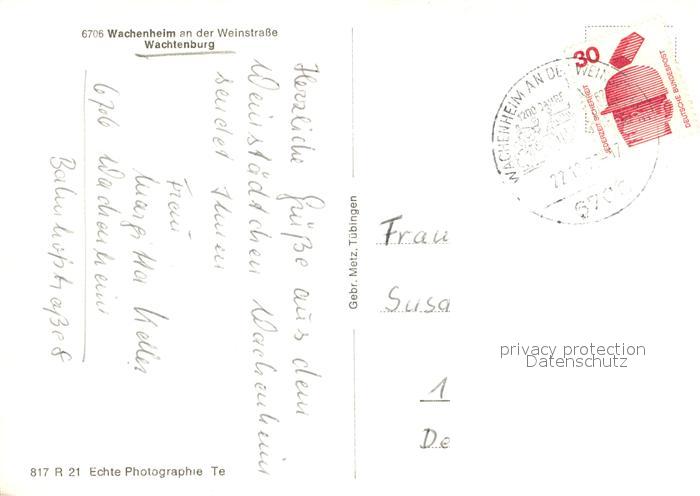 6706 Wachenheim an der Weinstraße
Wachtenburg
Herzliche Grüße aus dem
Weinstädtchen Wachenheim
sendet Ihnen
Frau
Margitta Keller
6706 Wachenheim
Bahnhofstraße 8
817 R 21 Echte Photographie Te
Gebr. Metz, Tübingen
30
DEUTSCHE BUNDESPOST
JEDERZEIT SICHERHEIT
WACHENHEIM AN DER WEIN
1200 JAHRE
22.10.
6706
Frau
Susa
1
De
privacy protection
Datenschutz